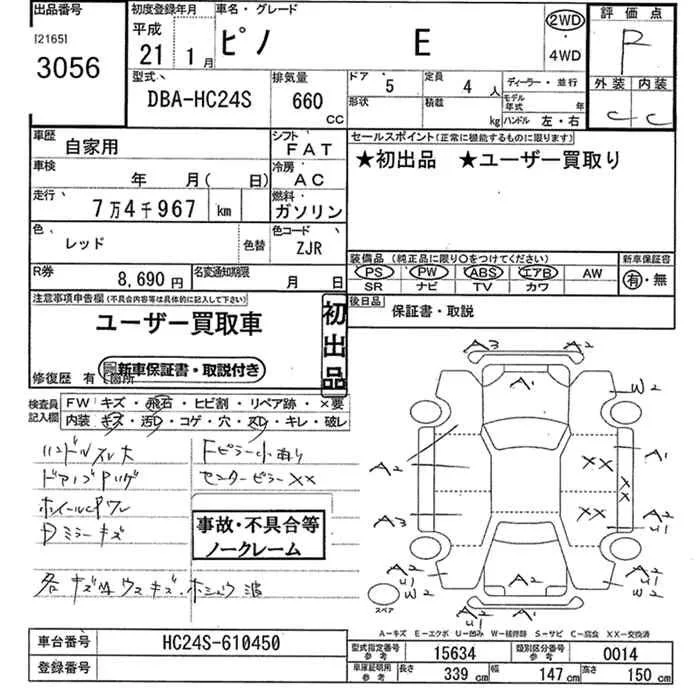 出品番号
[2165]
3056
初度登録年月
平成
21年 1月
車名・グレード
ピノ E
2WD
・
4WD
評価点
R
外装 内装
C C
型式
DBA-HC24S
排気量
660 CC
ドア 5
定員 4 人
ディーラー・並行
形状
積載 kg
モデル年式 年
ハンドル 左・右
車歴 自家用
シフト FAT
車検 年 月( 日)
冷房 AC
走行 7万4千967 km
燃料 ガソリン
色 レッド 色替
色コード ZJR
R券 8,690円
名変通知期限 月 日
セールスポイント(正常に機能するものに限ります)
★初出品 ★ユーザー買取り
装備品(純正品に限り○をつけてください)
PS PW ABS エアB AW
SR ナビ TV カワ
新車保証書
有・無
後日品
保証書・取説
注意事項申告欄(不具合内容等は具体的に記入して下さい)
ユーザー買取車
新車保証書・取説付き
修復歴 有 箇所
初出品
検査員記入欄
FW キズ・飛石・ヒビ割・リペア跡・×要
内装 キズ・汚レ・コゲ・穴・スレ・キレ・破レ
ハンドルスレ大
Fピラー小有り
センターピラーXX
Dミラーキズ
事故・不具合等
ノークレーム
A3 A2
A1
W2
A2 XX A1
XX
A3 XX A2
U1
A2 U1 A2 A2 U1 W2
スペア
A2
U1
A-キズ E-エクボ U-凹み W-補修跡 S-サビ C-腐食 XX-交換済
車台番号 HC24S-610450
登録番号
型式指定番号 参考 15634
類別区分番号 参考 0014
車庫証明用 参考 長さ 339 cm 幅 147 cm 高さ 150 cm